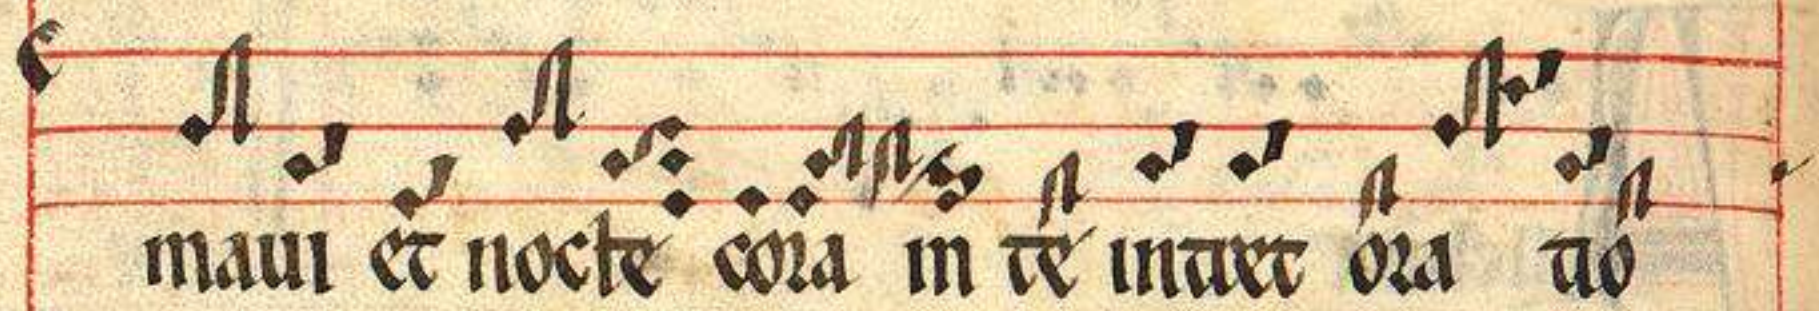 maui et nocte cora in te intret ora tio